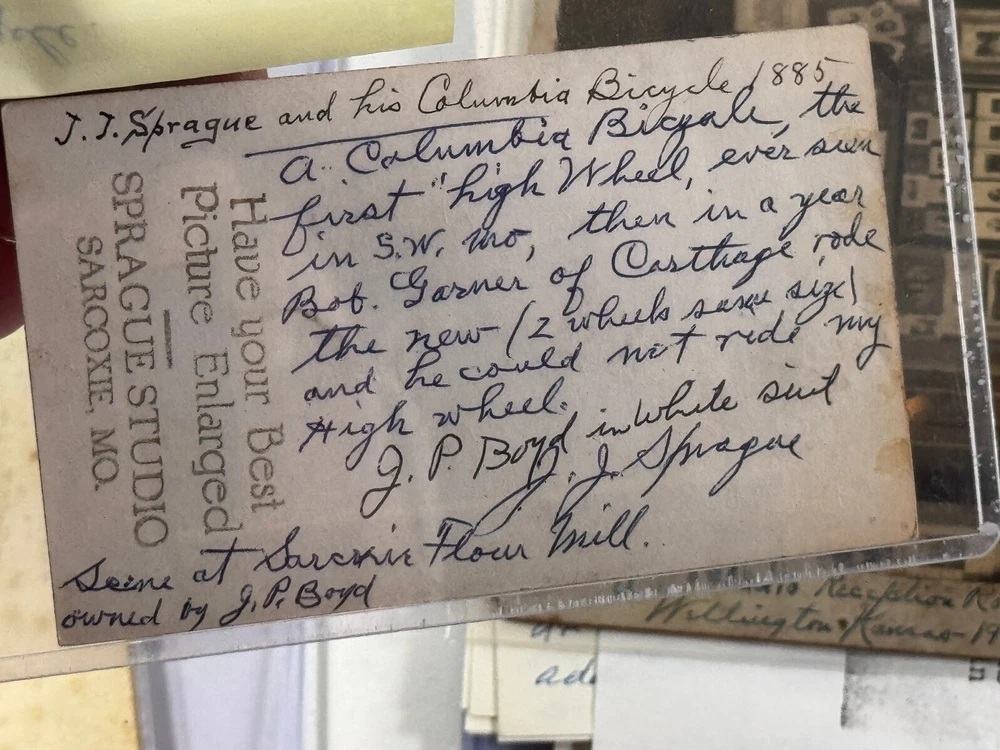 J.J. Sprague and his Columbia Bicycle 1885
A. Columbia Bicycle, the
first "high Wheel, ever seen
in S.W. Mo, then in a year
Bob. Garner of Carthage, rode
the new (2 wheels same size)
and he could not ride my
High wheel.
J. P. Boyd in White suit
J. J. Sprague
Scene at Sarcoxie Flour Mill.
owned by J. P. Boyd
Have your Best
Picture Enlarged
SPRAGUE STUDIO
SARCOXIE, MO.
Reception
Wellington Kansas 19